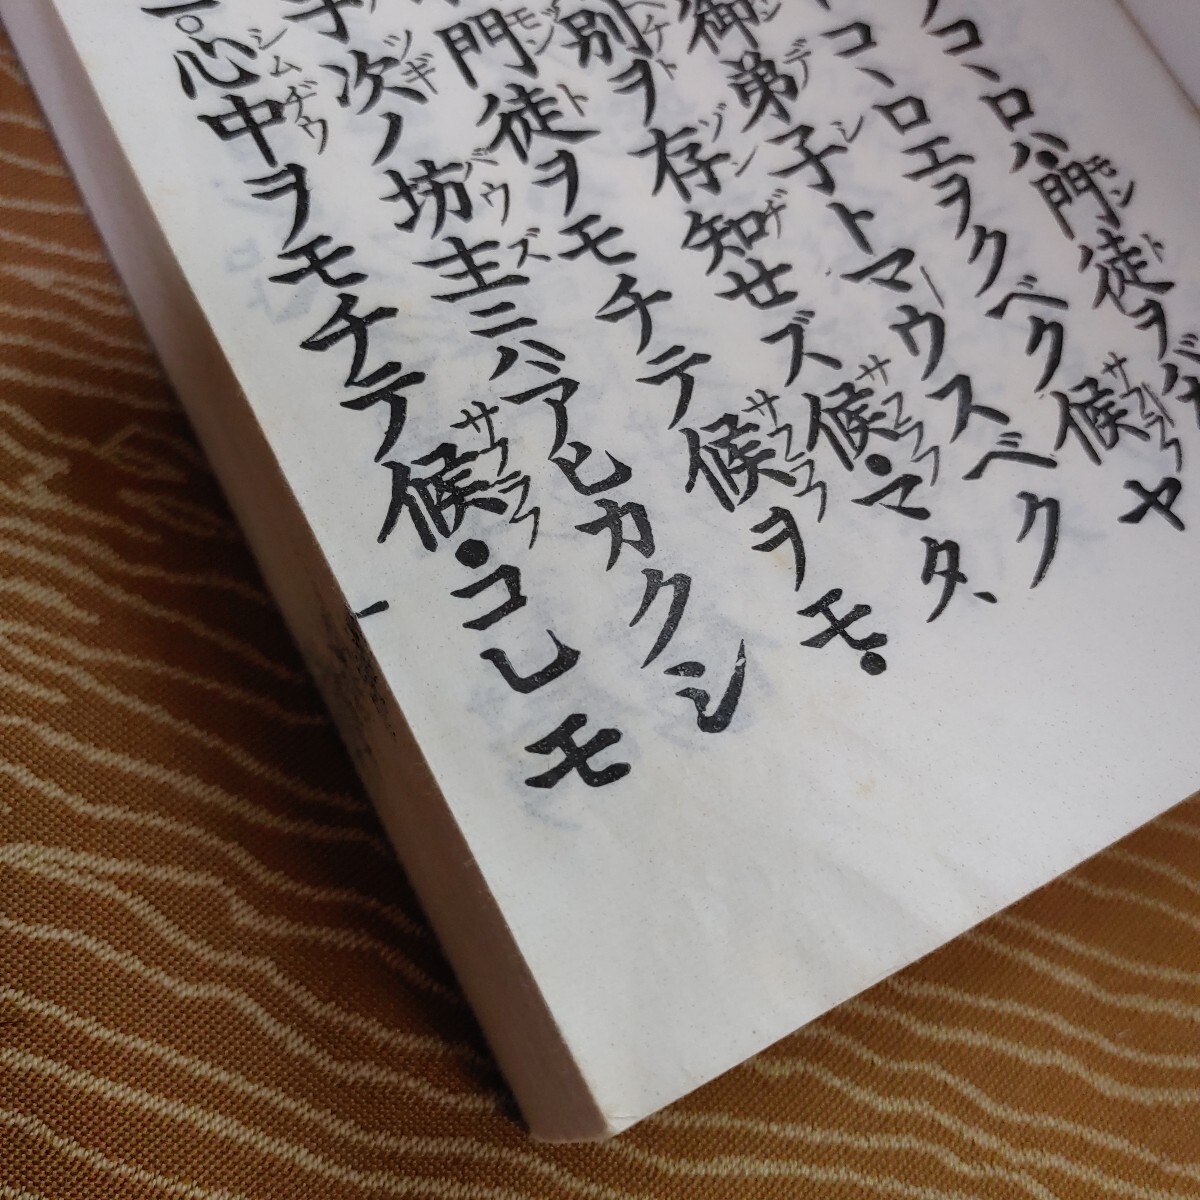 コヽロハ門徒ヲバ
コヽロエヲクベク候ヤ
御弟子トマウスベク
別ヲ存知セズ候・マタ、
門徒ヲモチテ候ヲモ・
次ノ坊主ニハアヒカクシ
心中ヲモチテ候・コレモ